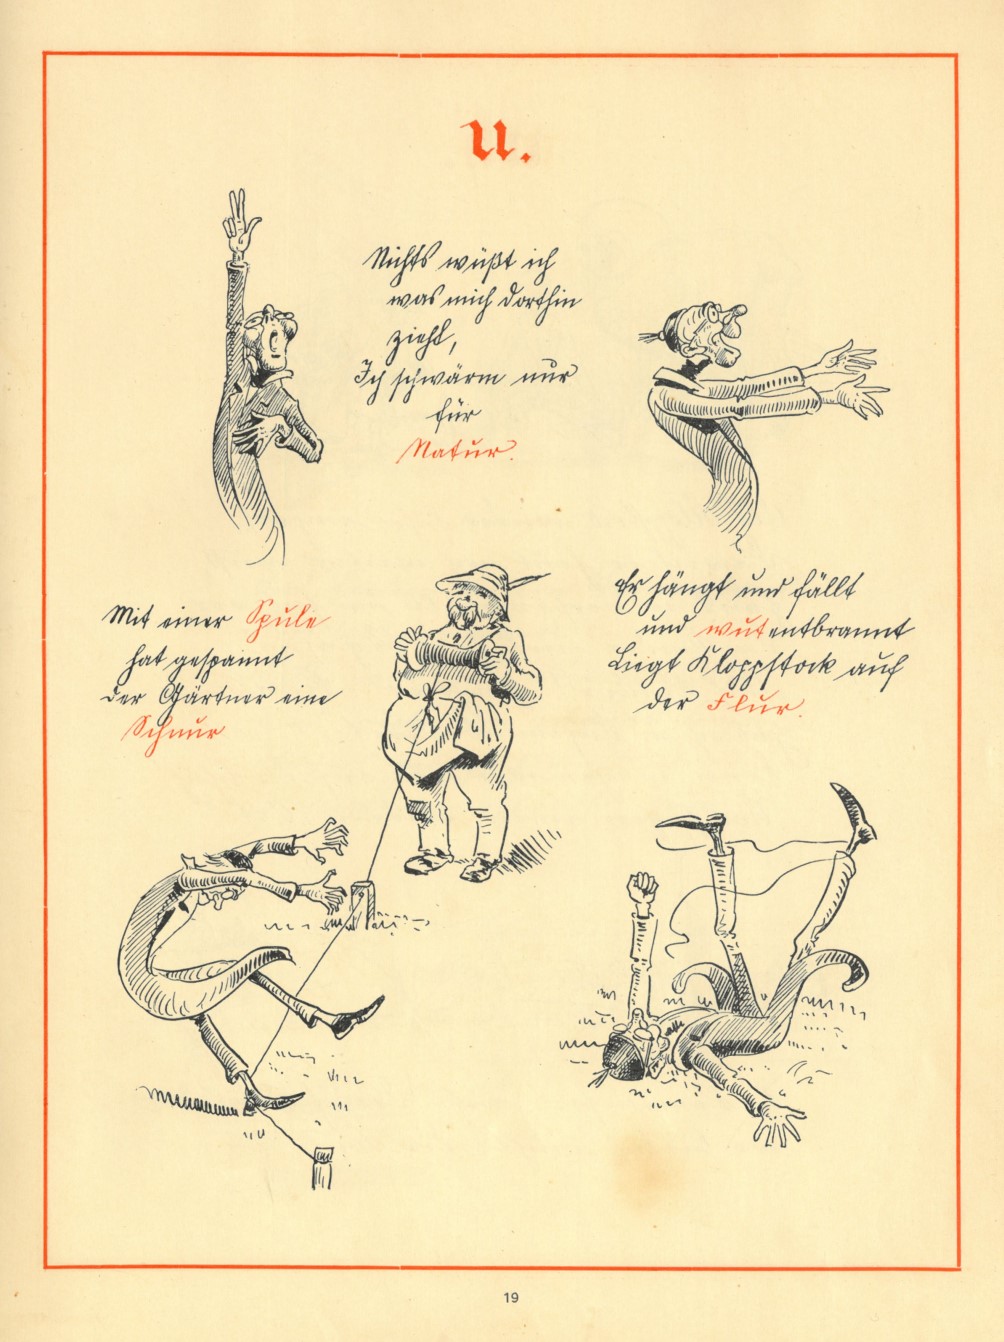 U.
Nichts wüßt ich
was mich dorthin
zieht,
Ich schwärm nur
für
Natur.
Mit einer Spule
hat gespannt
der Gärtner eine
Schnur
Er hängt und fällt
und wutentbrannt
Liegt Kloppstock auf
der Flur.
19